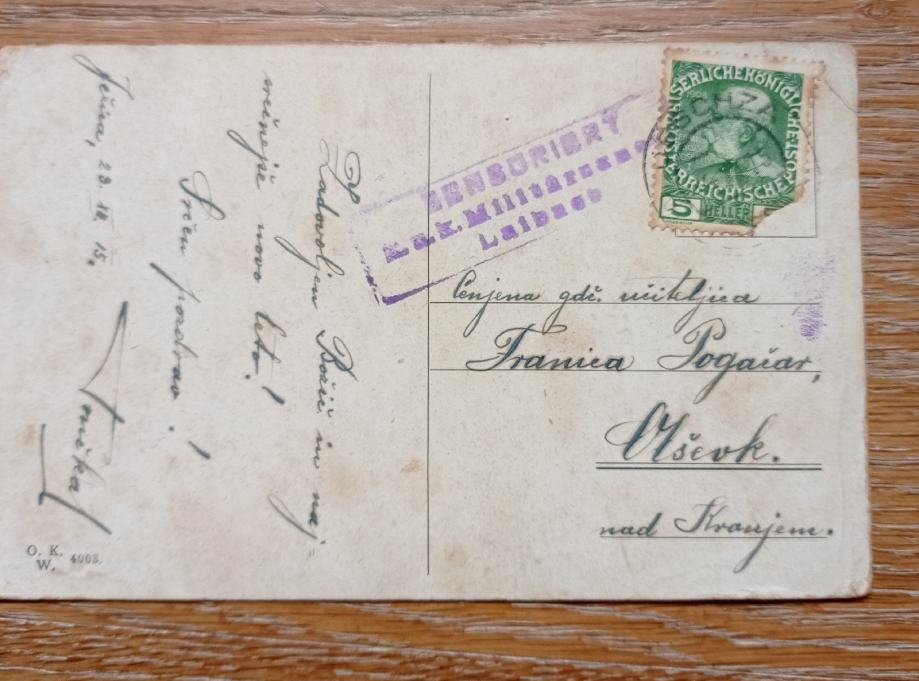 Zadovoljn Božič in naj-
srečnejše novo leto!
Srčen pozdrav!
Jesenice, 23. XII. 15.
O. K.
W. 4003.
ZENSURIERT
K.u.K. Militärzensur
Laibach
KAISERLICHE KÖNIGLICHE ÖSTERREICHISCHE
1908
5 HELLER
Cenjena gdč. učiteljica
Franica Pogačar,
Olševk.
nad Kranjem.